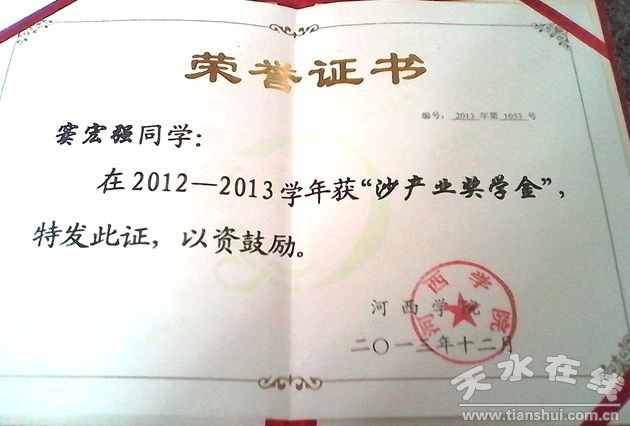 荣誉证书
编号: 2013 年第 1053 号
宏强同学:
在2012—2013学年获“沙产业奖学金”,
特发此证,以资鼓励。
河西学院
河西学院
二〇一三年十二月
天水在线
www.tianshui.com.cn